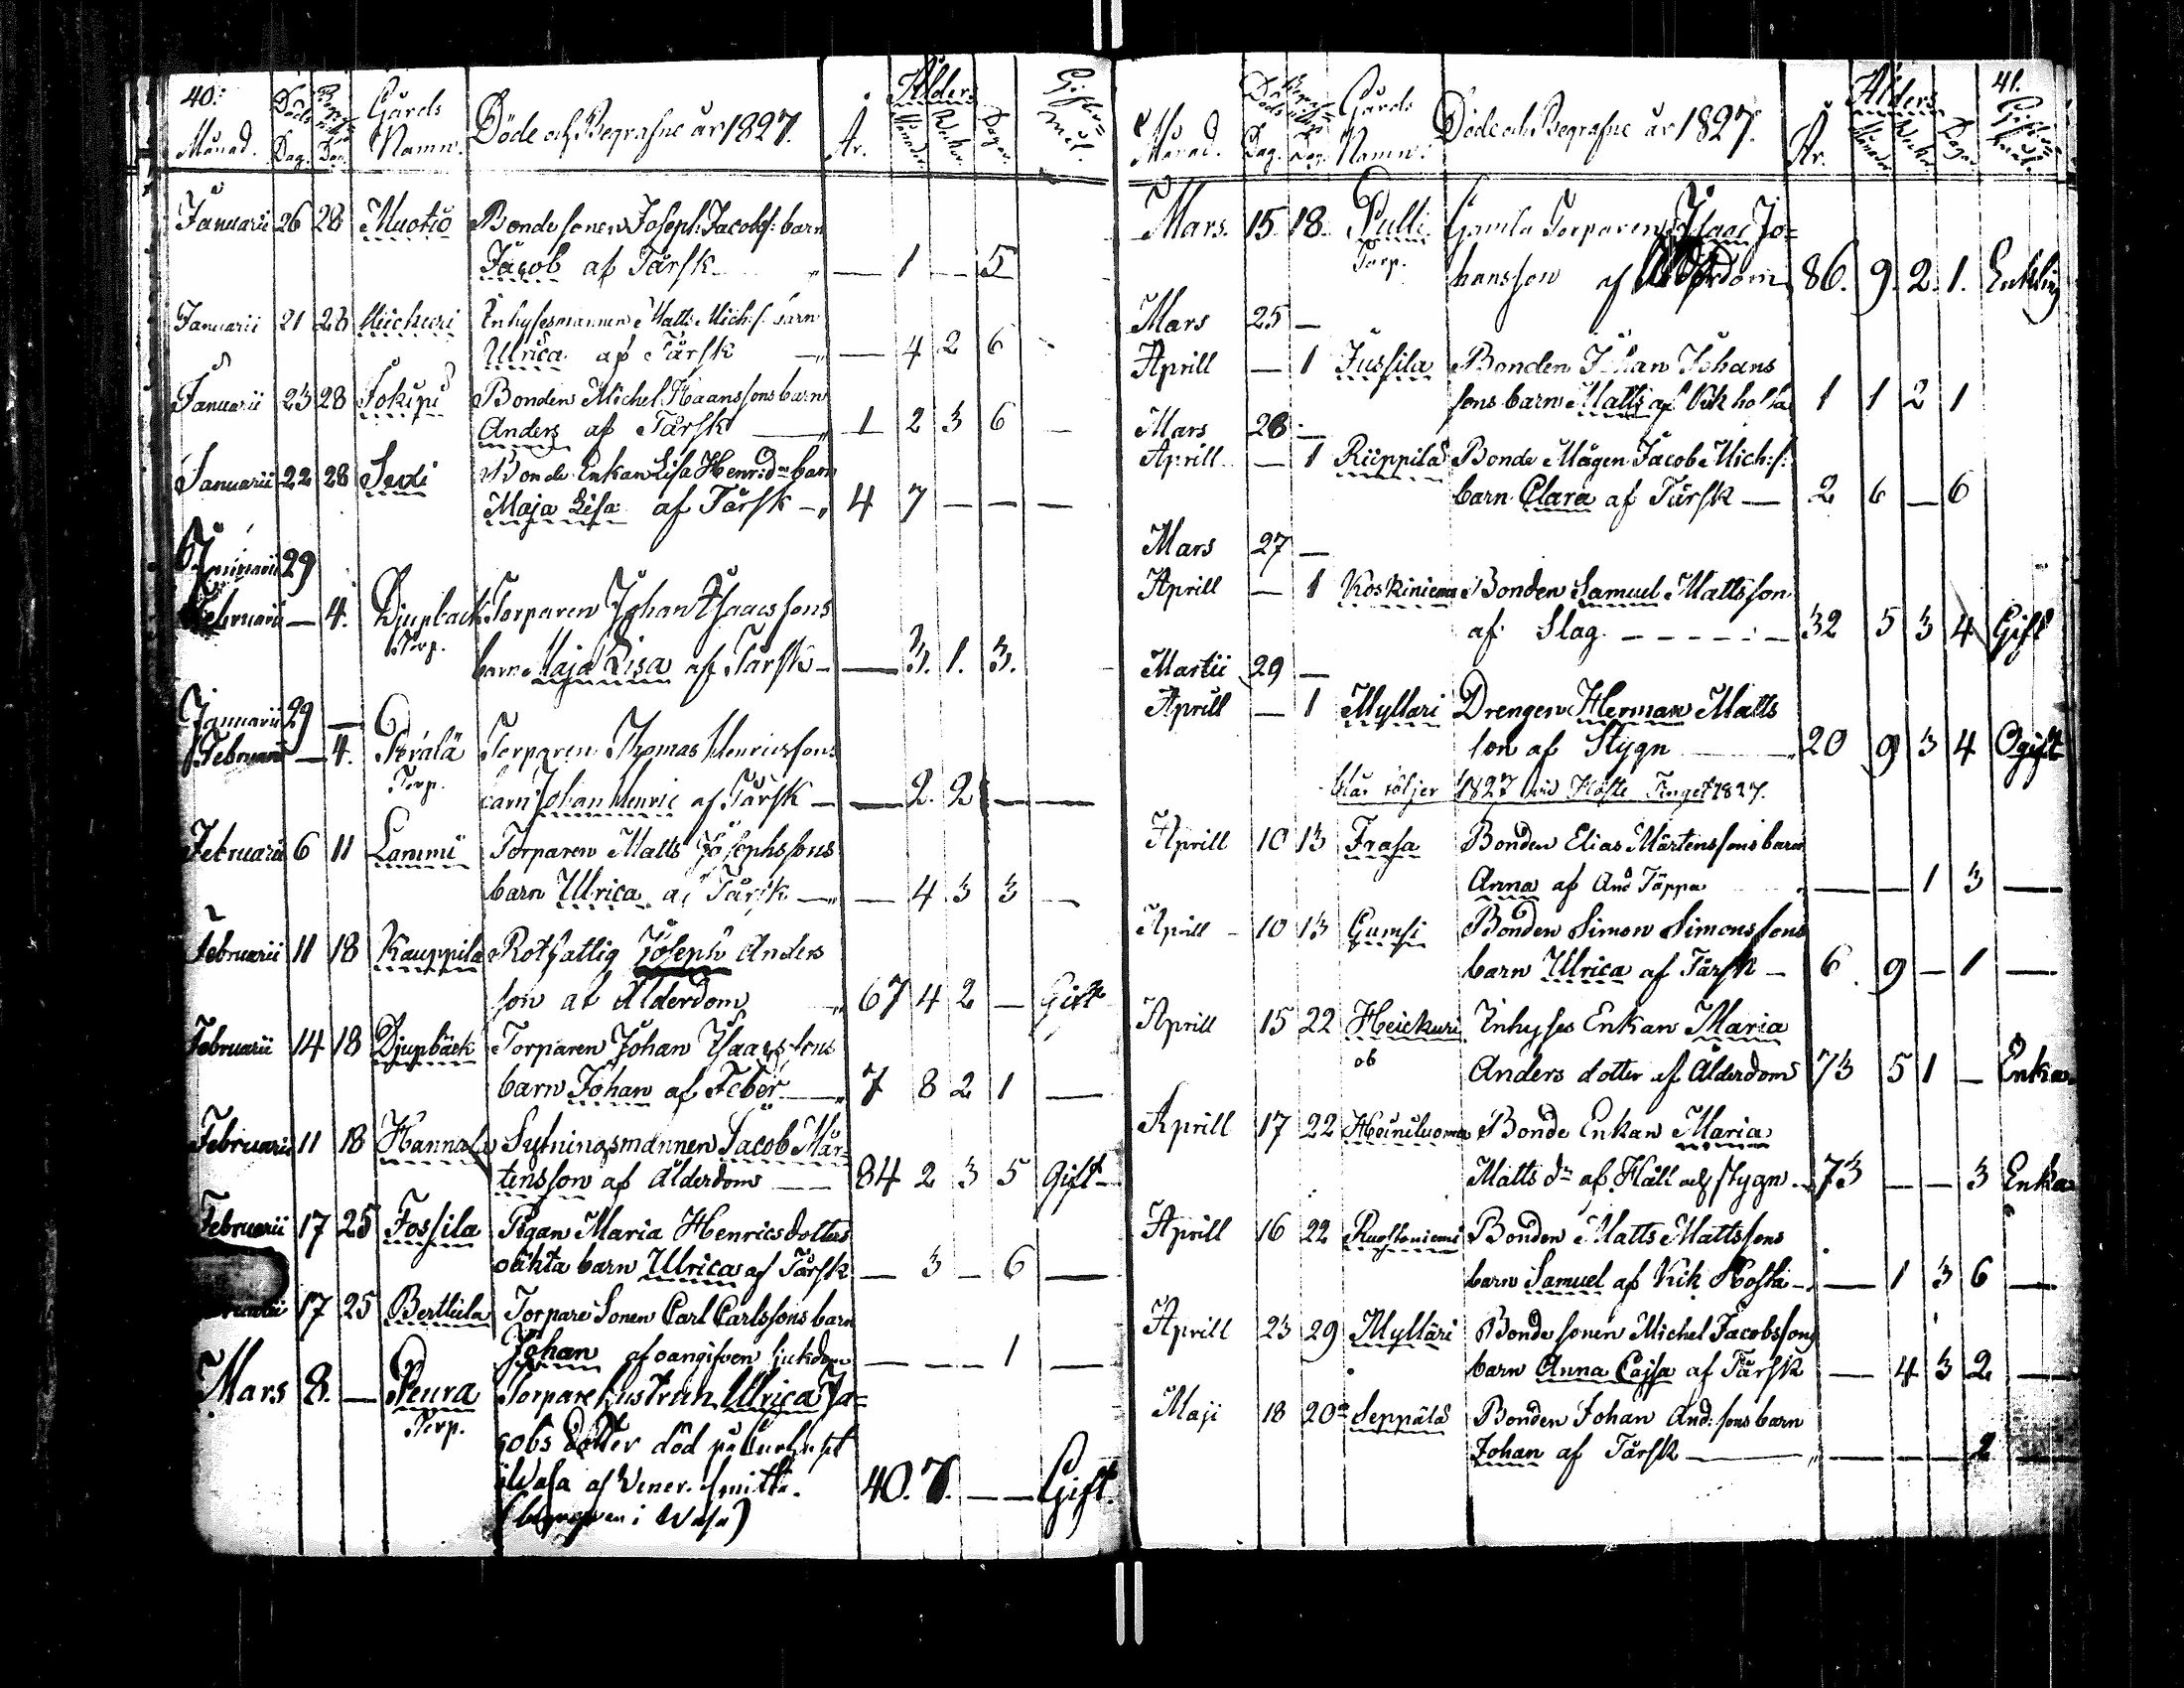 40.
Månad. Döds Dag. Begr: Dag. Gårds Namn. Döde och Begrafne år 1827. Ålder År. Månader Weckor. Dagar.
Januarii 26 28 Muotio Bonde sonen Joseph Jacobs: barn
Jacob af Tårsk — 1 — 5
Januarii 21 28 Inhysesmannen Matts Mich:s: barn
Ulrica af Tårsk — 4 2 6
Januarii 23 28 Jokipi Bonden Michel Haanssons barn
Anders af Tårsk — 1 2 3 6 —
Januarii 22 28 Bonde Enkan Lisa Henr:dr barn
Maja Lisa af Tårsk — 4 7 — — —
Januarii 29
Februarii — 4. Djupbäck Torparen Johan Isaacssons
Torp.
barn Maja Lisa af Tårsk — — 3. 1. 3.
Januarii 29 —
Februarii — 4. Perälä Torparen Thomas Henricssons
Torp.
barn Johan Henric af Tårsk — — 2. 2 — —
Februarii 6 11 Lammi Torparen Matts Josephssons
barn Ulrica af Tårsk — — 4 3 3 —
Februarii 11 18 Kauppila Rotfattig Joseph Anders
son af Ålderdom 67 4 2 — Gift
Februarii 14 18 Djupbäck Torparen Johan Isaacssons
barn Johan af Feber — 7 8 2 1 —
Februarii 11 18 Hannala Sytningsmannen Jacob Mår=
tensson af Ålderdom — 84 2 3 5 Gift
Februarii 17 25 Fossila Pigan Maria Henricsdotters
oäkta barn Ulrica af Tårsk — 3 — 6 —
17 25 Bertlila Torpare Sonen Carl Carlssons barn
Johan af oangifven sjukdom — — — 1 —
Mars 8. — Peura Torpare hustrun Ulrica Ja=
Torp.
cobs dotter död på
i Wasa af Vener. smitta. 40. 7. — — Gift.
(begrafven i Wasa)
41.
Månad. Döds Dag. Dag. Gårds Namn. Döde och Begrafne år 1827. Ålders År. Månader Weckor Dagar
Mars. 15. 18. Pulli Gamla Torparen Isaac Jo=
Torp.
hansson af Ålderdom 86. 9. 2. 1. Enkling
Mars 25 —
Aprill — 1 Jussila Bonden Johan Johans
sons barn Matts af Kikhosta 1 1 2 1
Mars 28 —
Aprill — 1 Riippilä Bonde Mågen Jacob Mich:s:
barn Clara af Tårsk — 2 6 — 6
Mars 27 —
Aprill — 1 Koskiniemi Bonden Samuel Mattsson
af Slag. — 32 5 3 4 Gift
Martii 29 —
Aprill — 1 Myllari Drengen Herman Matts
son af Stygn 20 9 3 4 Ogift
1827 vid Höste Tinget 1827.
Aprill 10 13 Frasa Bonden Elias Mårtenssons barn
Anna af And Täppa — — 1 3 —
Aprill 10 13 Gumsi Bonden Simon Simonssons
barn Ulrica af Tårsk — 6 9 — 1 —
Aprill 15 22 Heickuri Inhyses Enkan Maria
Anders dotter af Ålderdom 73 5 1 — Enka
Aprill 17 22 Heiniluoma Bonde Enkan Maria
Matts dr af Håll och stygn 73 — — 3 Enka
Aprill 16 22 Bonden Matts Mattssons
barn Samuel af Kik Hosta — — 1 3 6 —
Aprill 23 29 Mylläri Bonde sonen Michel Jacobssons
barn Anna Cajsa af Tårsk — 4 3 2 —
Maji 18 20 Seppälä Bonden Johan And: sons barn
Johan af Tårsk — — — — 2 —